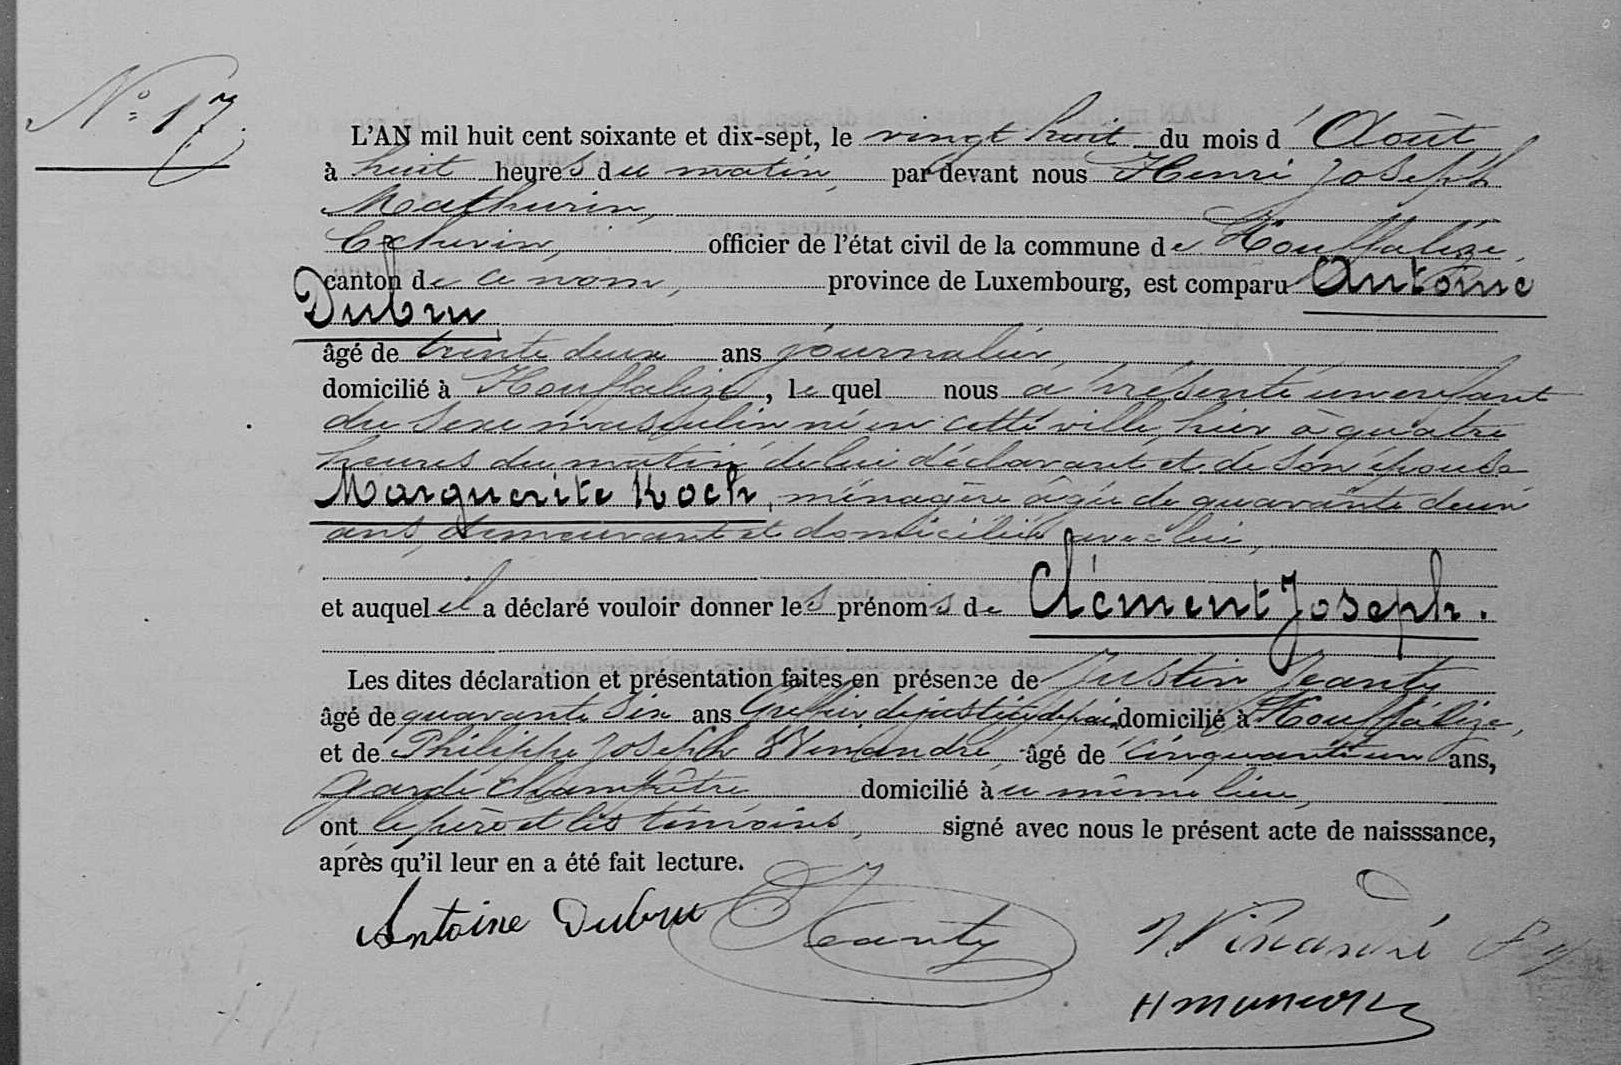 N° 17
L'AN mil huit cent soixante et dix-sept, le vingt huit du mois d'Août
à huit heures du matin, par devant nous Henri Joseph
Mathurin,
Echevin, officier de l'état civil de la commune de Houffalize,
canton de ce nom, province de Luxembourg, est comparu Antoine
Dubru,
âgé de trente deux ans journalier,
domicilié à Houffalize, le quel nous a présenté un enfant
du sexe masculin né en cette ville hier à quatre
heures du matin de lui déclarant et de son épouse
Marguerite Koch, ménagère âgée de quarante deux
ans, demeurant et domiciliée avec lui,
et auquel il a déclaré vouloir donner les prénoms de Clément Joseph.
Les dites déclaration et présentation faites en présence de Justin Jeanty
âgé de quarante six ans Greffier de justice de paix, domicilié à Houffalize,
et de Philippe Joseph Winandré, âgé de cinquante un ans,
garde champêtre domicilié à u même lieu,
ont le père et les témoins, signé avec nous le présent acte de naisssance,
après qu'il leur en a été fait lecture.
Antoine Dubru Jeanty Winandré P J